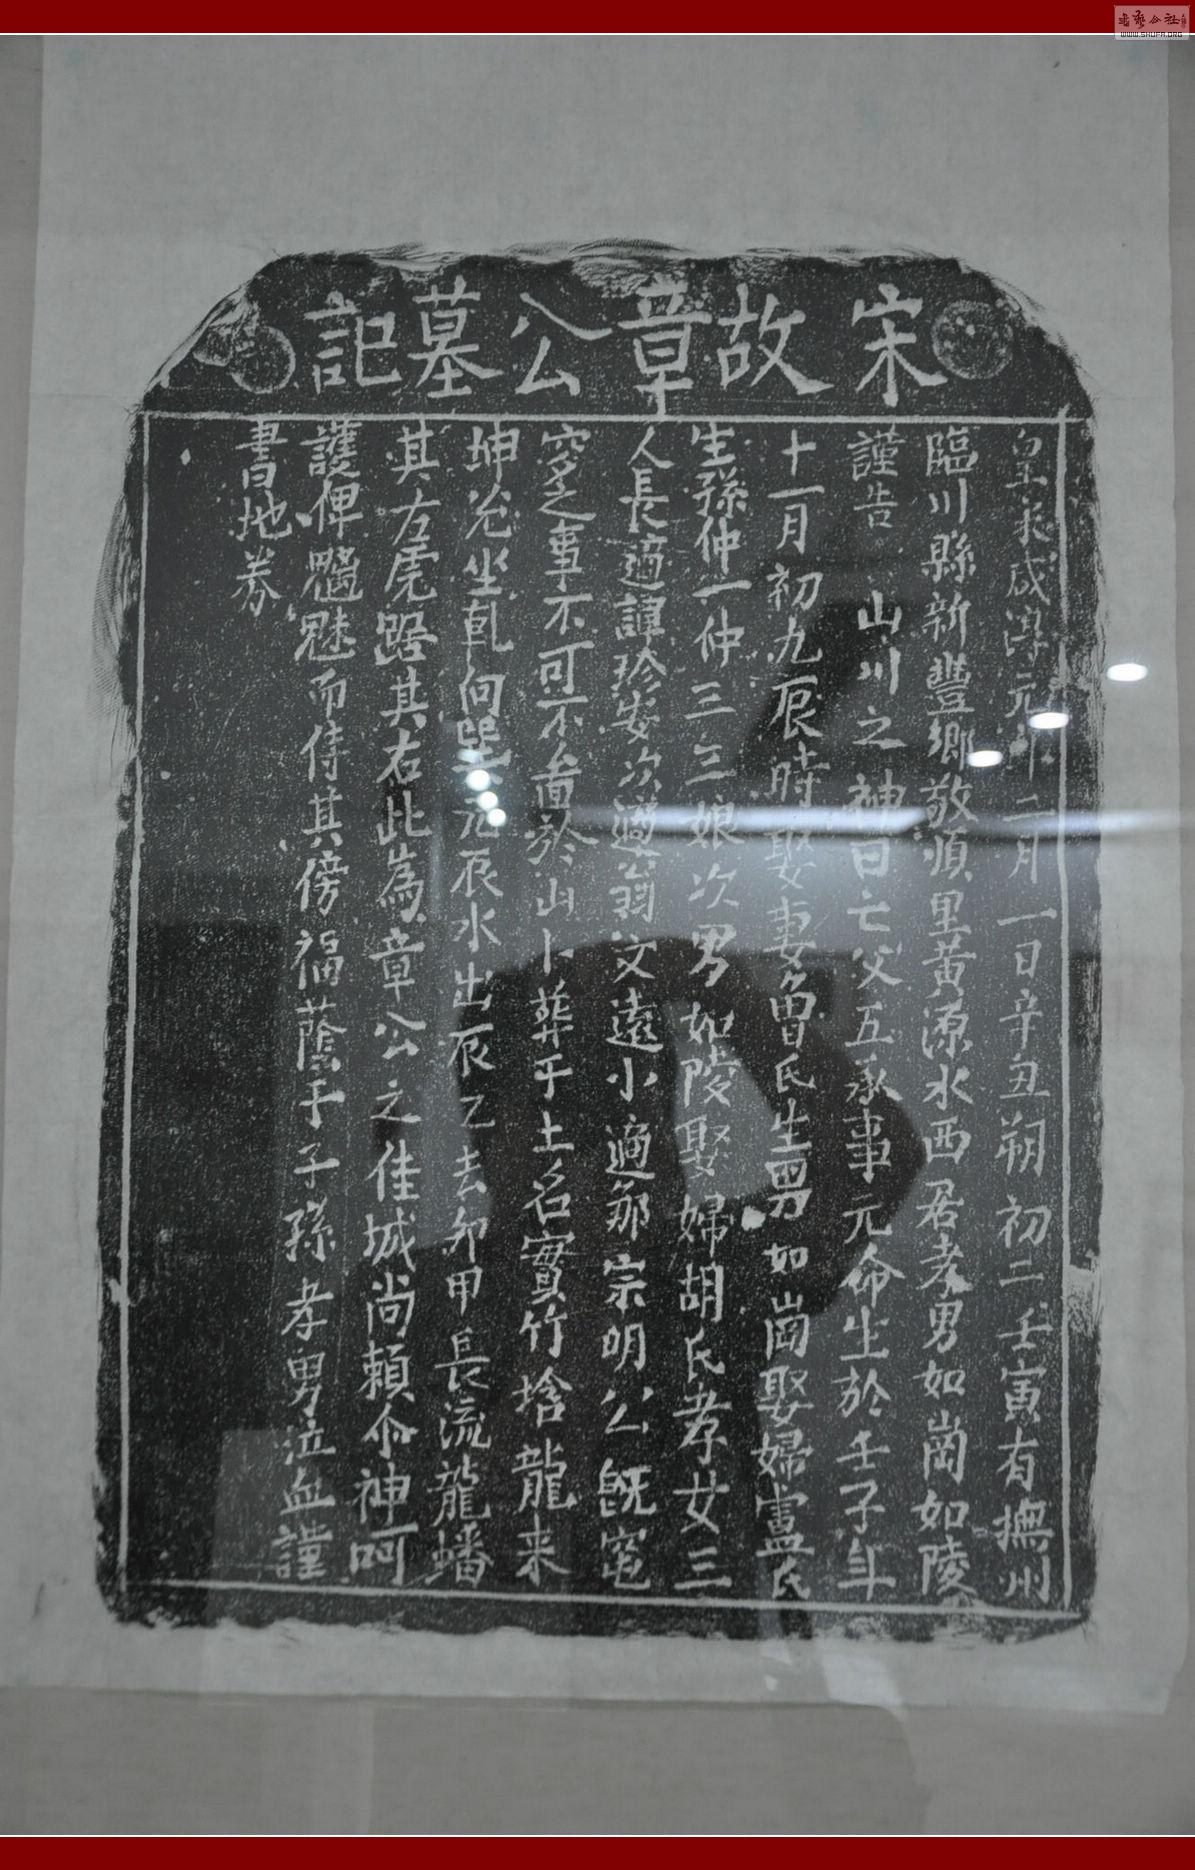 宋故章公墓記
皇宋咸淳元年二月一日辛丑朔初二壬寅有撫州
臨川縣新豐鄉敬順里黃源水西居孝男如崗如陵
謹告山川之神曰亡父五承事元命生於壬子年
十一月初九辰時娶妻曾氏生男如崗娶婦盧氏
生孫仲一仲三三娘次男如陵娶婦胡氏孝女三
人長適譚珍安次適翁文遠小適鄒宗明公既窀
穸之事不可不啚於山卜葬于土名實竹塘龍来
坤兊坐乹向巽元辰水出辰乙去夘甲長流龍蟠
其左虎踞其右此為章公之佳城尚賴尒神呵
護俾魑魅而侍其傍福蔭于子孫孝男泣血謹
書地券
WWW.SHUFA.ORG